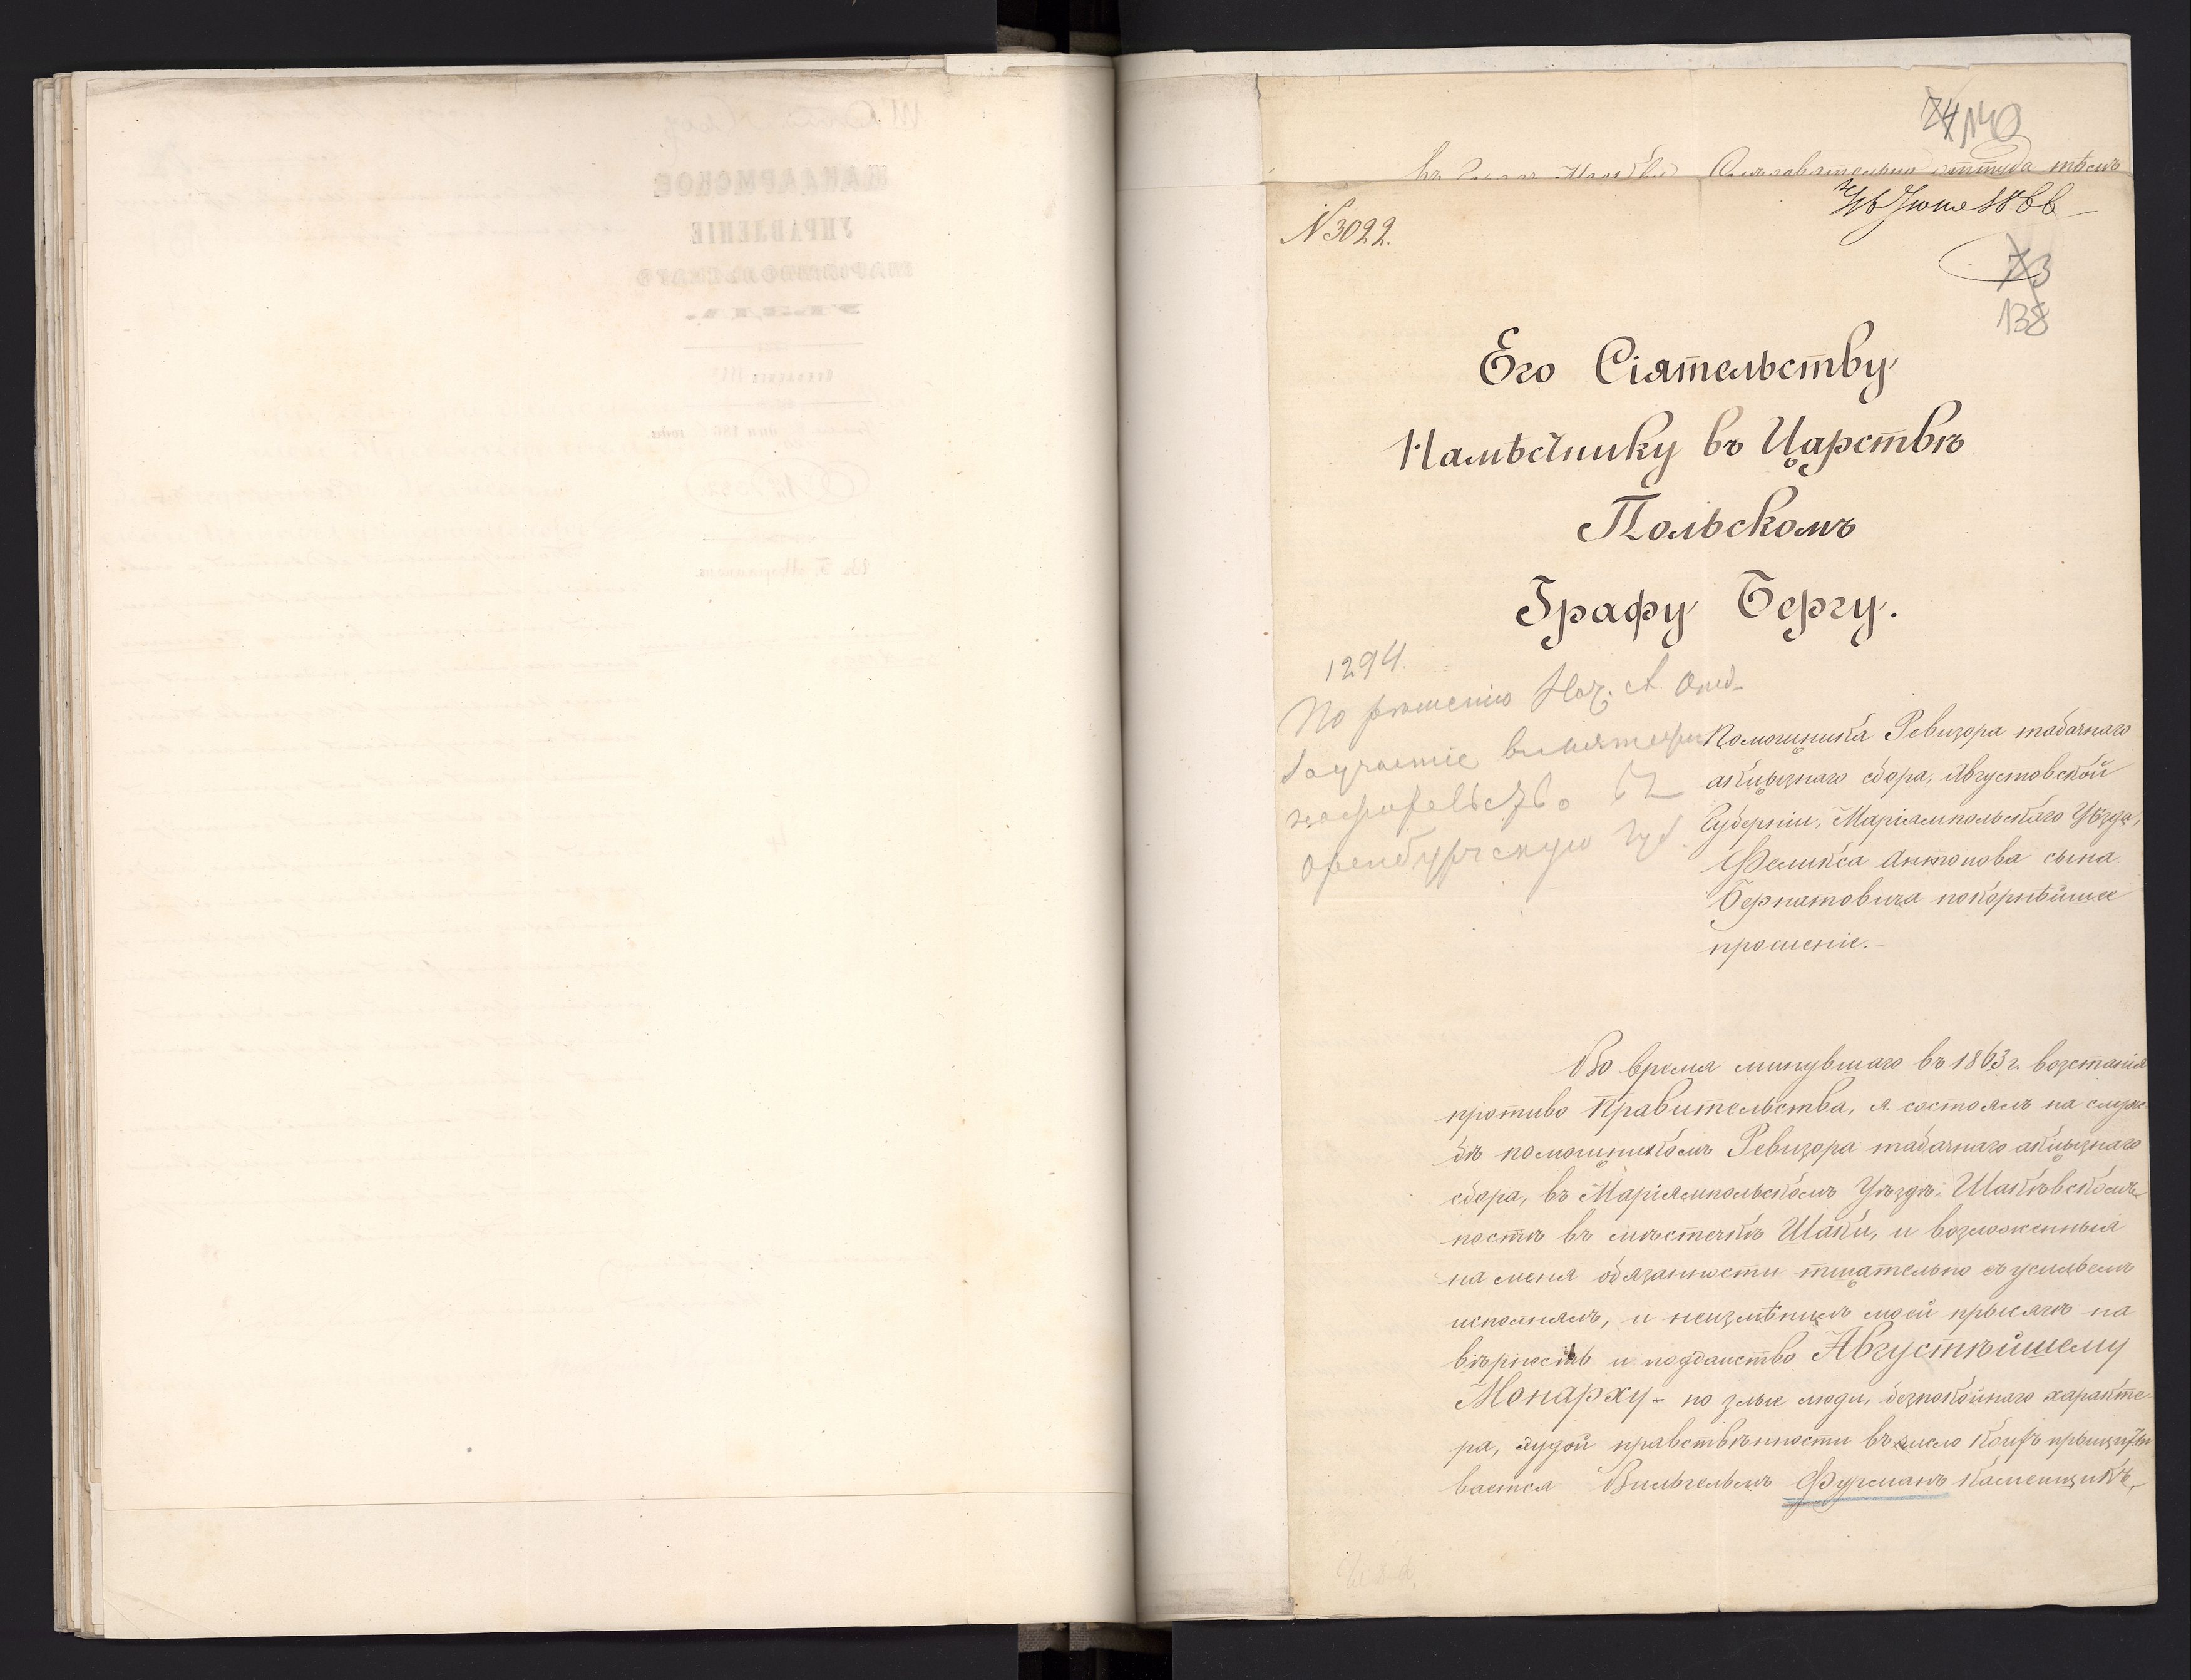 74 140
въ
оттуда тѣмъ
4/16 Іюня 1866
N 3022.
73
138
Его Сіятельству
Намѣстнику въ Царствѣ
Польскомъ
Графу Бергу.
1294.
По рѣшенію
За участіе въ мятежи
въ
Оренбургскую губ.
Помощника Ревизора табачнаго
акцызнаго сбора, Августовской
Губерніи, Маріямпольскаго Уѣзда,
Феликса Антонова сына
Бернатовича покорнѣйшее
прошеніе.-
Во время минувшаго въ 1863 г. возстанія
противо Правительства, я состоялъ на служ-
бѣ помощникомъ Ревизора табачнаго акцызнаго
сбора, въ Маріямпольскомъ Уѣздѣ, Шакѣвскомъ
постѣ въ мѣстечкѣ Шаки, и возложенныя
на меня обязанности тщательно съ усилвемъ
исполнялъ, и неизмѣнилъ моей прысягѣ на
вѣрность и подданство Августѣйшему
Монарху - но злые люди, безпокойнаго характе-
ра, худой нравствѣнности въ число коихъ
вается Вильгельмъ Фурманъ каменщикъ,